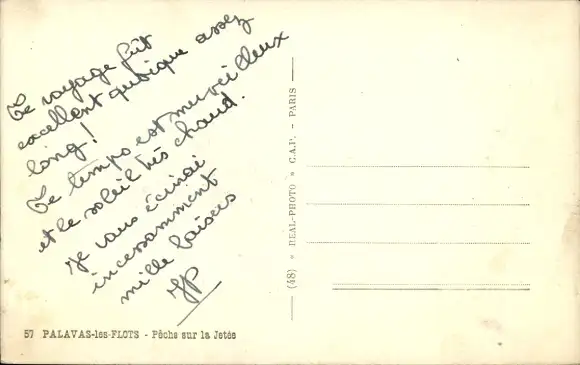 Le voyage fût
excellent quoique assez
long!
Le temps est merveilleux
et le soleil très chaud.
Je vous écrirai
incessamment
mille baisers
JP
57 PALAVAS-les-FLOTS - Pêche sur la Jetée
(48) " REAL-PHOTO " C.A.P. - PARIS